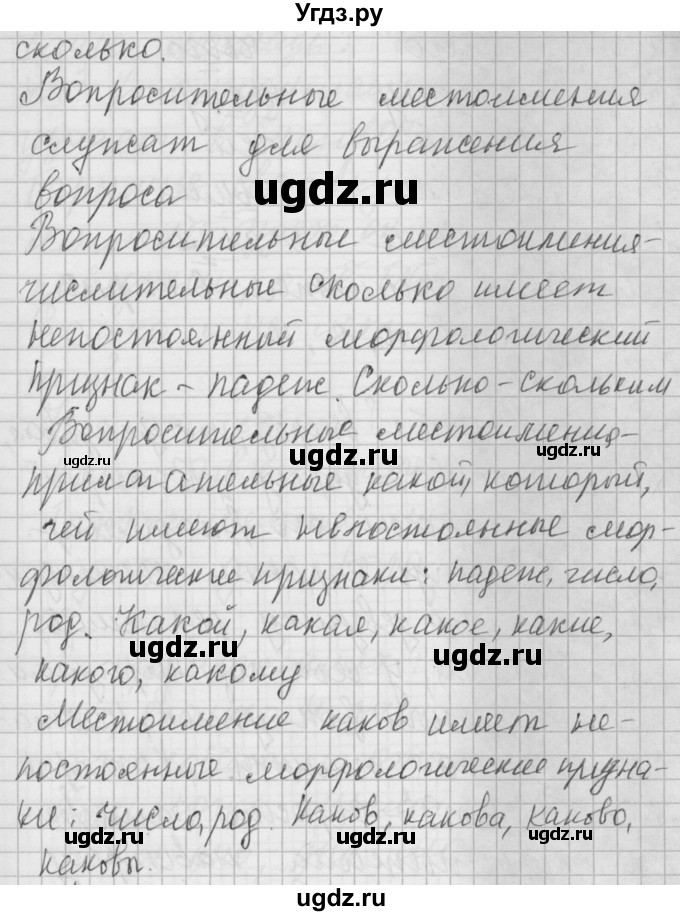 Угдз.ру
сколько.
Вопросительные местоимения
служат для выражения
вопроса
ugdz.ru
Вопросительные местоимения-
числительные сколько имеет
непостоянный морфологический
признак - падеж. Сколько - скольким
Вопросительные местоимения-
ugdz.ru
ugdz.ru
ugdz.ru
прилагательные какой, который,
чей имеют непостоянные мор-
фологические признаки: падеж, число,
род. Какой, какая, какое, какие,
ugdz.ru
ugdz.ru
какого, какому
Местоимение каков имеет не-
постоянные морфологические призна-
ки: число, род. Каков, какова, каково,
ugdz.ru
ugdz.ru
ugdz.ru
каковы.
ugdz.ru